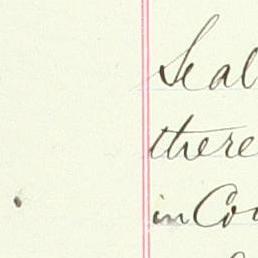 Seal
there
in Cou